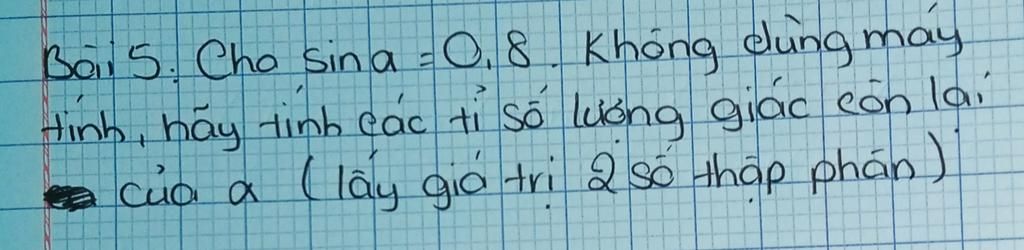 Bài 5: Cho sin a = 0,8. Không dùng máy
tính, hãy tính các tỉ số lượng giác còn lại
của a (lấy giá trị 2 số thập phân)